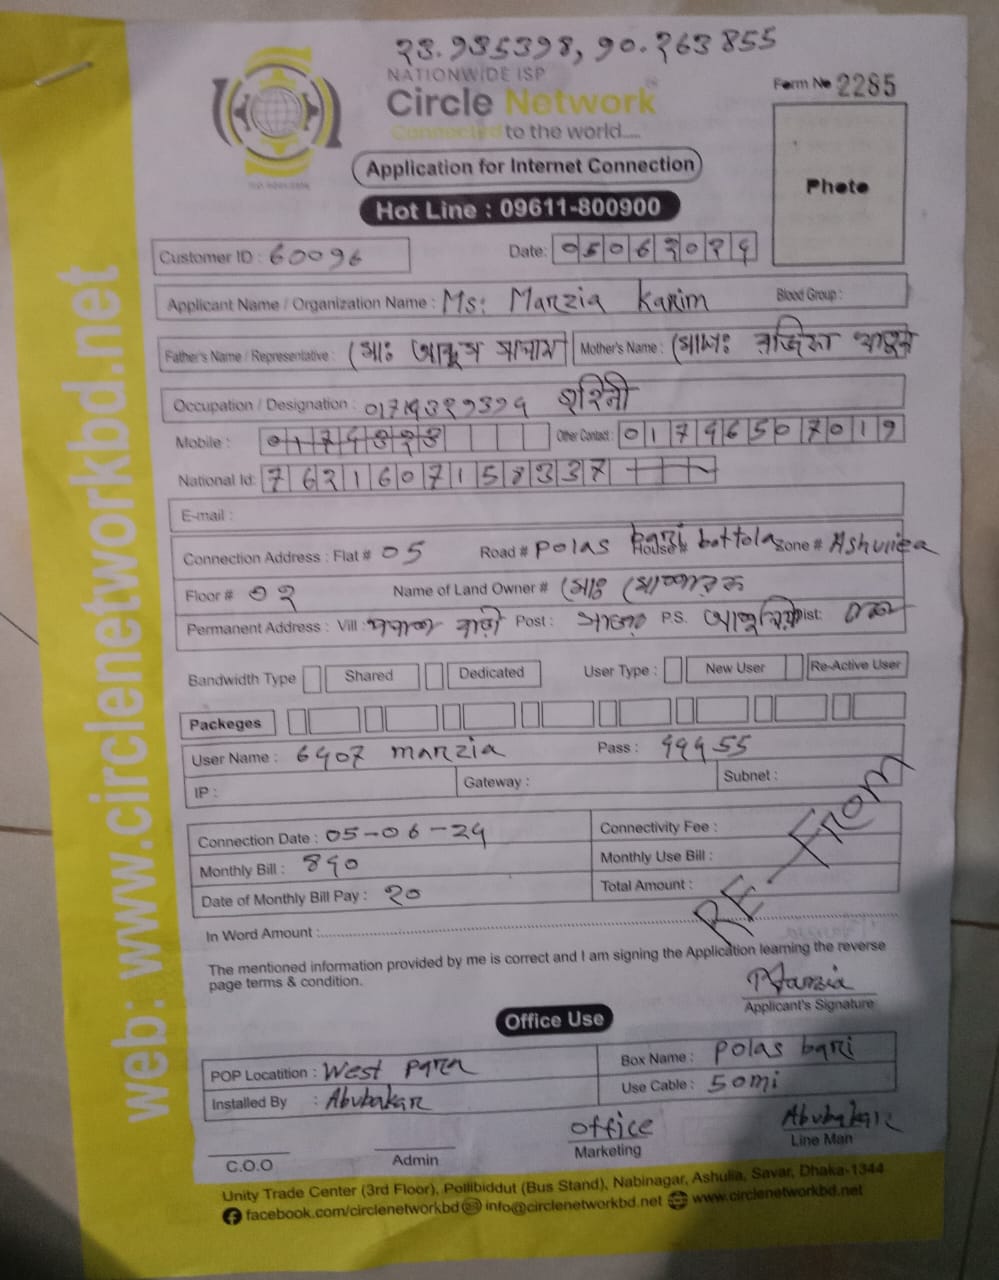 23.935398, 90.263855
NATIONWIDE ISP
Circle Network
Connected to the world....
Form No 2285
Photo
Application for Internet Connection
Hot Line : 09611-800900
Customer ID : 60096
Date: 05062024
Applicant Name / Organization Name : Ms: Marzia Karim
Blood Group :
Father's Name / Representative : মোঃ
Mother's Name : মোসাঃ
Occupation / Designation :
Mobile :
Other Contact : 01746507019
National Id: 7621607158337
E-mail :
Connection Address : Flat # 05 Road # Polas bari House # bottola Zone # Ashuliea
Floor # 02 Name of Land Owner # মোঃ
Permanent Address : Vill : পলাশ বাড়ী Post : P.S. Dist: ঢাকা
Bandwidth Type Shared Dedicated User Type : New User Re-Active User
Packeges
User Name : 6407 marzia Pass : 44455
IP : Gateway : Subnet :
RE-From
Connection Date : 05-06-24 Connectivity Fee :
Monthly Bill : 840 Monthly Use Bill :
Date of Monthly Bill Pay : 20 Total Amount :
In Word Amount :
The mentioned information provided by me is correct and I am signing the Application learning the reverse
page terms & condition.
Marzia
Applicant's Signature
Office Use
POP Locatition : West para Box Name : Polas bari
Installed By : Abubakar Use Cable : 50mi
office Abubakar
C.O.O Admin Marketing Line Man
Unity Trade Center (3rd Floor), Pollibiddut (Bus Stand), Nabinagar, Ashulia, Savar, Dhaka-1344
facebook.com/circlenetworkbd info@circlenetworkbd.net www.circlenetworkbd.net
web: www.circlenetworkbd.net